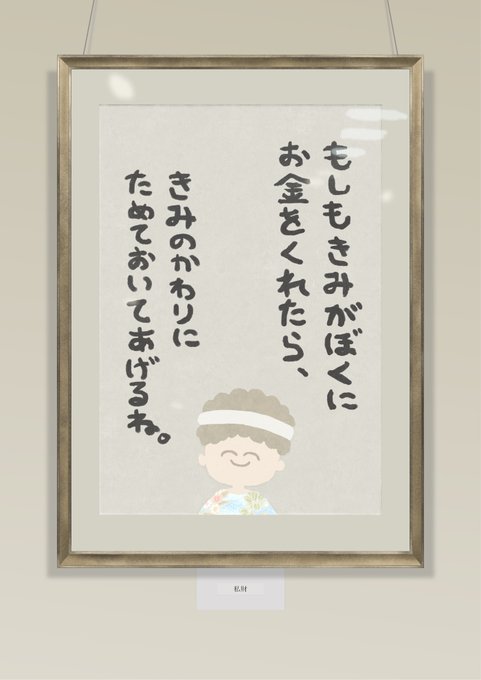 もしもきみがぼくに
お金をくれたら、
きみのかわりに
ためておいてあげるね。
私財